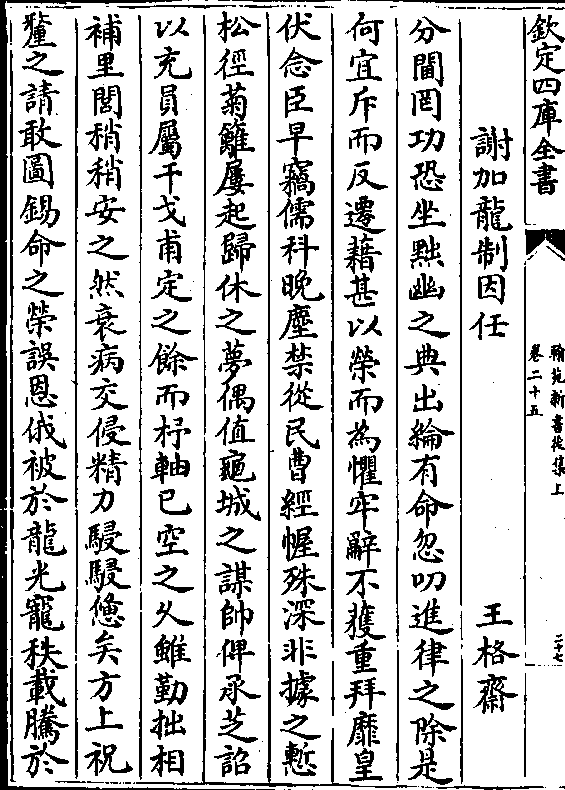 欽定四庫全書
翰苑新書後集上
卷二十五
二十七
謝加龍制因任
王格齋
分閫罔功恐坐黜幽之典出綸有命忽叨進律之除是
何宜斥而反遷藉甚以榮而為懼牢辭不獲重拜靡皇
伏念臣早竊儒科晚塵禁從民曹經幄殊深非據之慙
松徑菊籬屢起歸休之夢偶值龜城之謀帥俾承芝詔
以充員屬干戈甫定之餘而杼軸已空之久雖勤拙相
補里閭稍稍安之然衰病交侵精力駸駸憊矣方上祝
釐之請敢圖錫命之榮誤恩俄被於龍光寵秩載騰於